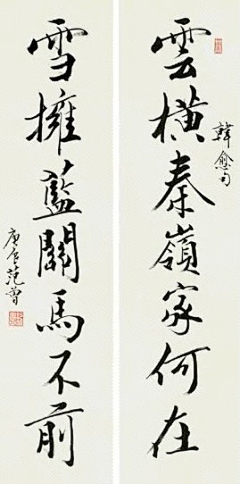 雲橫秦嶺家何在
韓愈句
雪擁藍關馬不前
庚辰范曾